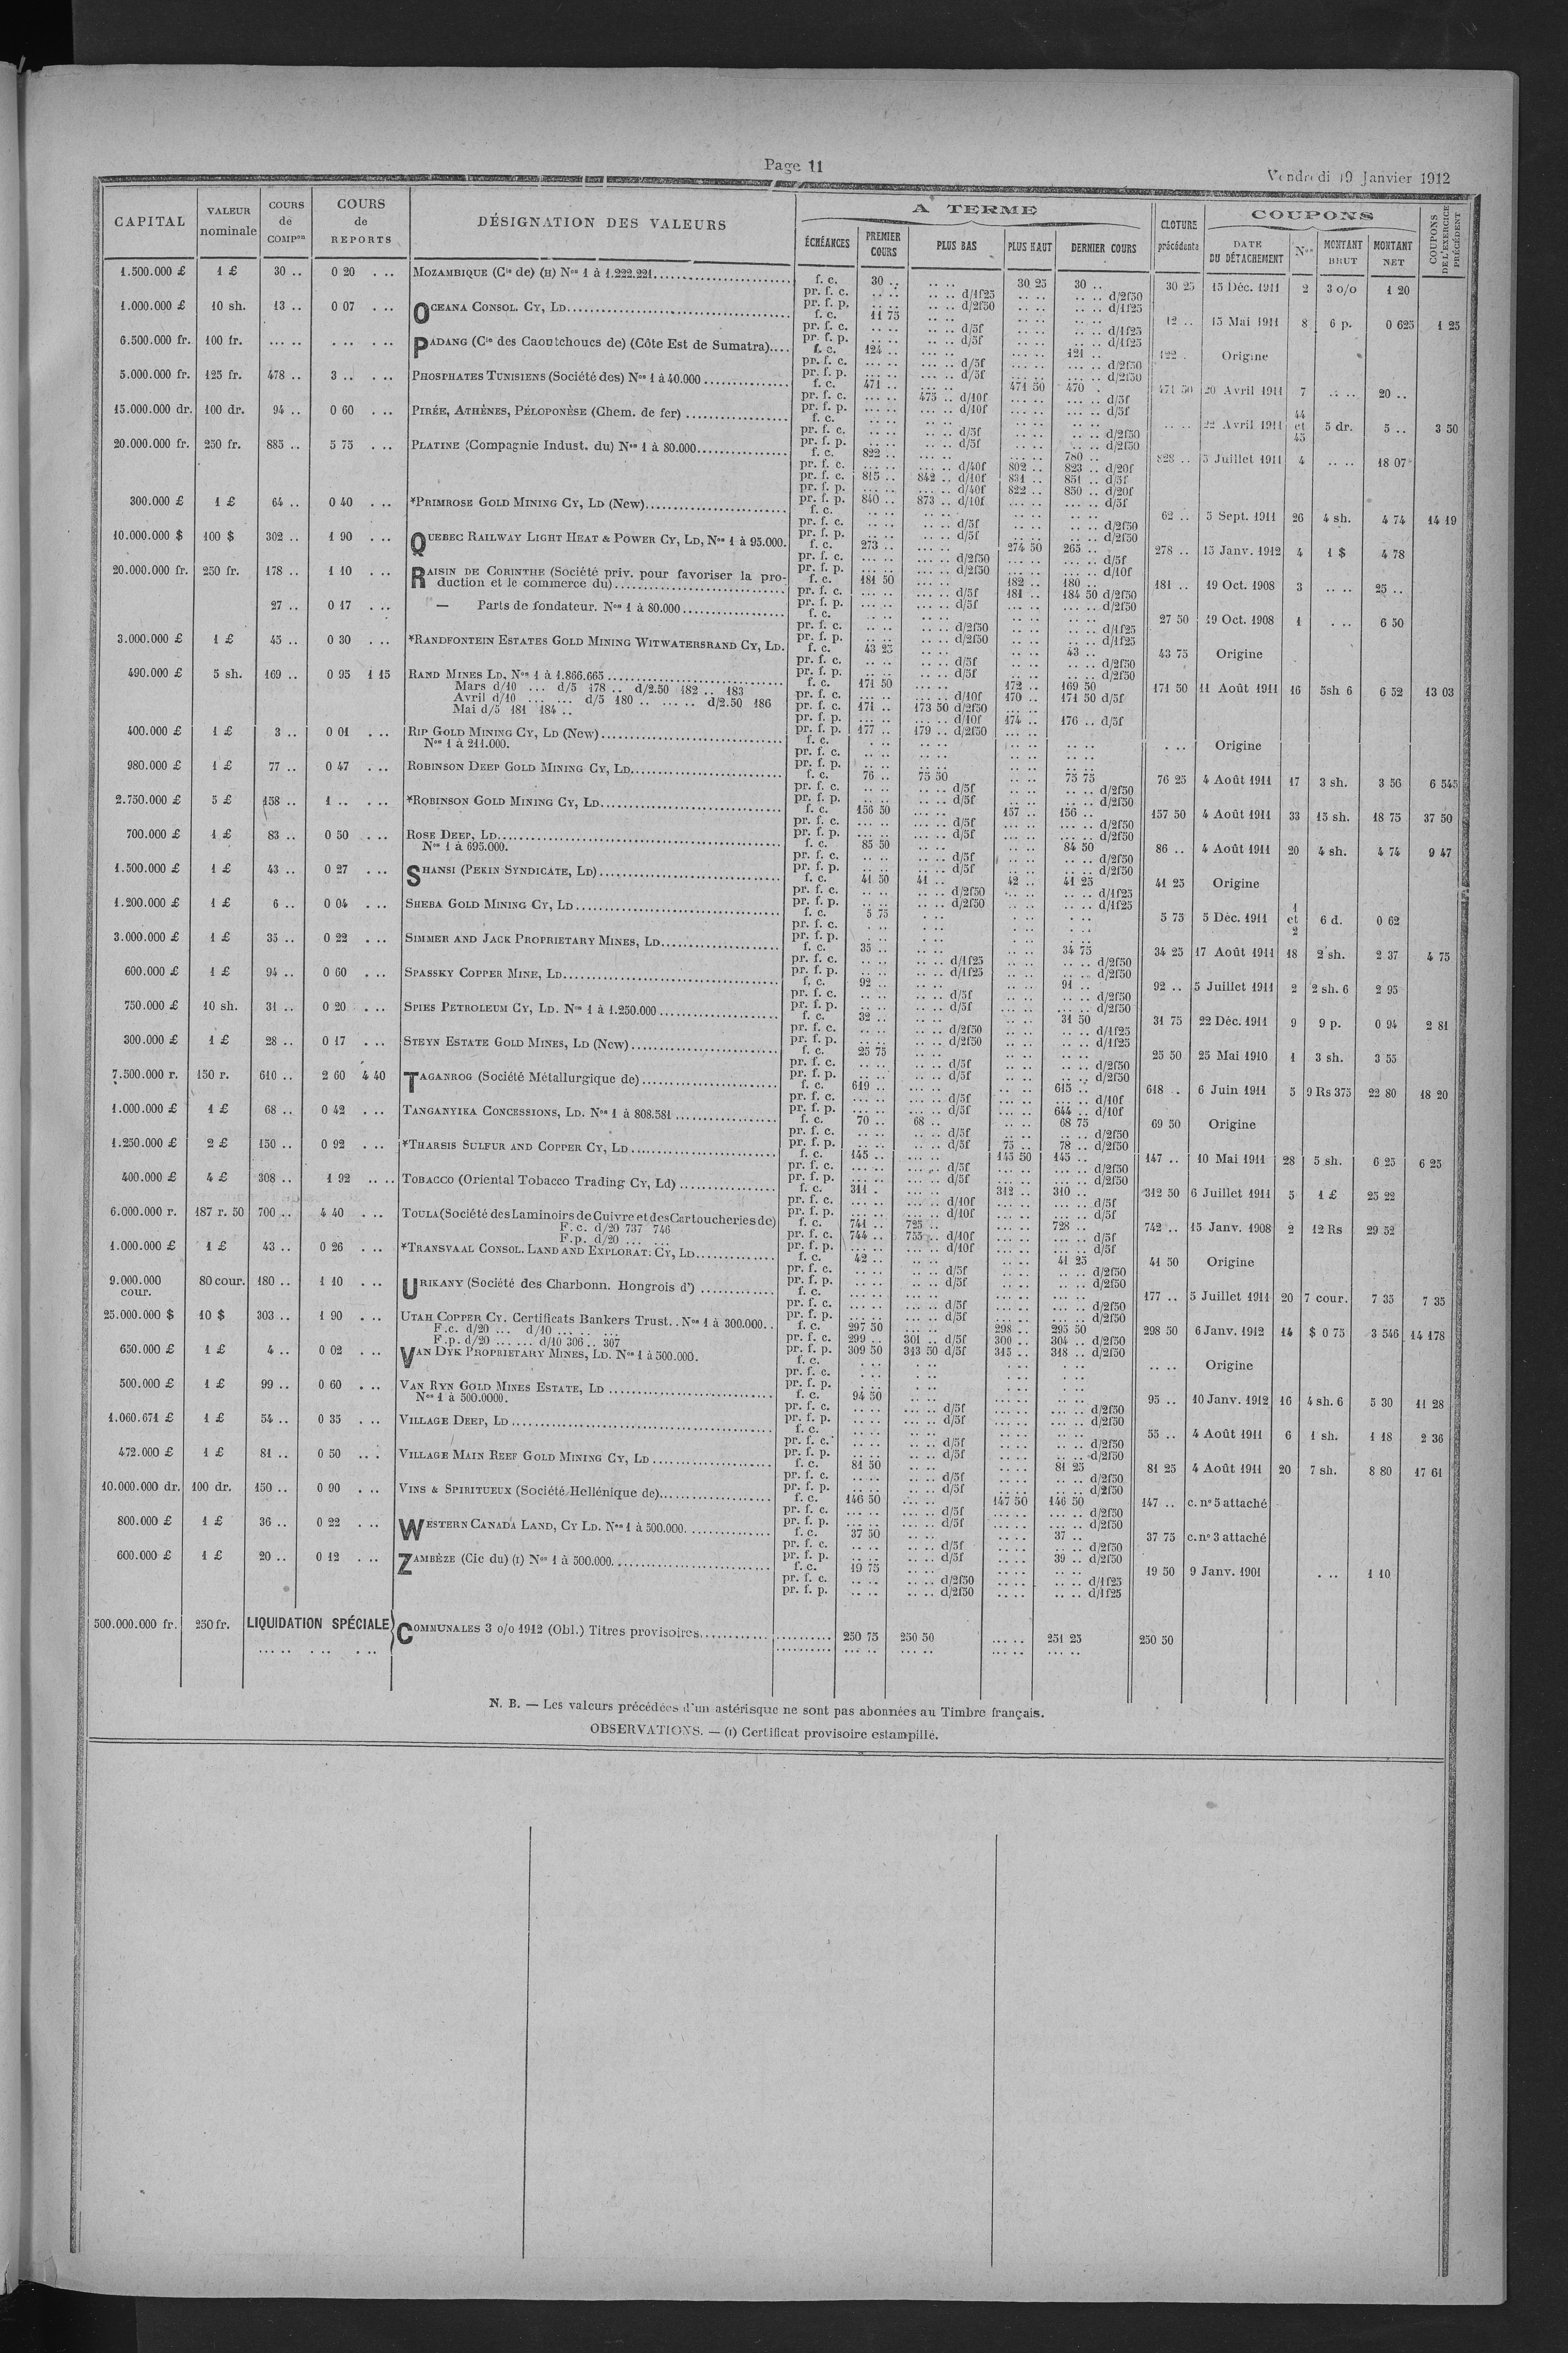 Page 11
Vendredi 19 Janvier 1912
CAPITAL VALEUR nominale COURS de COMPon COURS de REPORTS DÉSIGNATION DES VALEURS A TERME CLOTURE précédente COUPONS COUPONS DE L'EXERCICE PRÉCÉDENT
ÉCHÉANCES PREMIER COURS PLUS BAS PLUS HAUT DERNIER COURS DATE DU DÉTACHEMENT Nos MONTANT BRUT MONTANT NET
1.500.000 £ 1 £ 30 .. 0 20 . .. MOZAMBIQUE (Cie de) (H) Nos 1 à 1.222.221 f. c. 30 .. .. .. 30 25 30 .. 30 25 15 Déc. 1911 2 3 o/o 1 20
pr. f. c. .. .. .. .. d/1f25 .. .. .. .. d/2f50
pr. f. p. .. .. .. .. d/2f50 .. .. .. .. d/1f25
1.000.000 £ 10 sh. 13 .. 0 07 . .. OCEANA CONSOL. CY, LD f. c. 11 75 .. .. .. .. .. .. 12 .. 15 Mai 1911 8 6 p. 0 625 1 25
pr. f. c. .. .. .. .. d/5f .. .. .. .. d/1f25
pr. f. p. .. .. .. .. d/5f .. .. .. .. d/1f25
6.500.000 fr. 100 fr. ... .. . .. . .. PADANG (Cie des Caoutchoucs de) (Côte Est de Sumatra) f. c. 124 .. ... .. ... .. 121 .. 122 . Origine
pr. f. c. ... .. ... .. d/5f ... .. ... .. d/2f50
pr. f. p. ... .. ... .. d/5f ... .. ... .. d/2f50
5.000.000 fr. 125 fr. 478 .. 3 .. . .. PHOSPHATES TUNISIENS (Société des) Nos 1 à 40.000 f. c. 471 .. ... .. 471 50 470 . 471 50 20 Avril 1911 7 .. .. 20 ..
pr. f. c. ... .. 475 .. d/10f ... .. ... .. d/5f
pr. f. p. ... .. ... .. d/10f ... .. ... .. d/5f
15.000.000 dr. 100 dr. 94 .. 0 60 . .. PIRÉE, ATHÈNES, PÉLOPONÈSE (Chem. de fer) f. c. .. .. .. .. .. .. .. .. .. .. 22 Avril 1911 44 et 45 5 dr. 5 .. 3 50
pr. f. c. .. .. .. .. d/5f .. .. .. .. d/2f50
pr. f. p. .. .. .. .. d/5f .. .. .. .. d/2f50
20.000.000 fr. 250 fr. 885 .. 5 75 . .. PLATINE (Compagnie Indust. du) Nos 1 à 80.000 f. c. 822 .. ... .. ... .. 780 .. 828 .. 5 Juillet 1911 4 .. .. 18 07
pr. f. c. ... .. ... .. d/40f 802 .. 823 .. d/20f
pr. f. c. 815 .. 842 .. d/10f 831 .. 851 .. d/5f
pr. f. p. ... .. ... .. d/40f 822 .. 850 .. d/20f
pr. f. p. 840 .. 873 .. d/10f ... .. ... .. d/5f
300.000 £ 1 £ 64 .. 0 40 . .. *PRIMROSE GOLD MINING CY, LD (New) f. c. .. .. .. .. .. .. .. .. 62 .. 5 Sept. 1911 26 4 sh. 4 74 14 19
pr. f. c. .. .. .. .. d/5f .. .. .. .. d/2f50
pr. f. p. .. .. .. .. d/5f .. .. .. .. d/2f50
10.000.000 $ 100 $ 302 .. 1 90 . .. QUEBEC RAILWAY LIGHT HEAT & POWER CY, LD, Nos 1 à 95.000. f. c. 273 .. ... .. 274 50 265 .. 278 .. 15 Janv. 1912 4 1 $ 4 78
pr. f. c. ... .. ... .. d/2f50 ... .. ... .. d/5f
pr. f. p. ... .. ... .. d/2f50 ... .. ... .. d/10f
20.000.000 fr. 250 fr. 178 .. 1 10 . .. RAISIN DE CORINTHE (Société priv. pour favoriser la production et le commerce du) f. c. 181 50 ... .. 182 .. 180 .. 181 .. 19 Oct. 1908 3 .. .. 25 ..
pr. f. c. ... .. ... .. d/5f 181 .. 184 50 d/2f50
pr. f. p. ... .. ... .. d/5f ... .. ... .. d/2f50
27 .. 0 17 . .. — Parts de fondateur. Nos 1 à 80.000 f. c. .. .. .. .. .. .. .. .. 27 50 19 Oct. 1908 1 . .. 6 50
pr. f. c. .. .. .. .. d/2f50 .. .. .. .. d/1f25
pr. f. p. .. .. .. .. d/2f50 .. .. .. .. d/1f25
3.000.000 £ 1 £ 45 .. 0 30 . .. *RANDFONTEIN ESTATES GOLD MINING WITWATERSRAND CY, LD. f. c. 43 25 .. .. .. .. 43 .. 43 75 Origine
pr. f. c. .. .. .. .. d/5f .. .. .. .. d/2f50
pr. f. p. .. .. .. .. d/5f .. .. .. .. d/2f50
490.000 £ 5 sh. 169 .. 0 95 1 15 RAND MINES LD. Nos 1 à 1.866.665 f. c. 171 50 ... .. 172 .. 169 50 171 50 11 Août 1911 16 5sh 6 6 52 13 03
Mars d/10 ... d/5 178 .. d/2.50 182 .. 183 pr. f. c. ... .. ... .. d/10f 170 .. 171 50 d/5f
Avril d/10 ... ... d/5 180 .. ... .. d/2.50 186 pr. f. c. 171 .. 173 50 d/2f50 ... ..
Mai d/5 181 184 .. pr. f. p. ... .. ... .. d/10f 174 .. 176 .. d/5f
pr. f. p. 177 .. 179 .. d/2f50 ... ..
400.000 £ 1 £ 3 .. 0 01 . .. RIP GOLD MINING CY, LD (New) f. c. . .. .. .. .. .. .. .. . .. Origine
Nos 1 à 211.000. pr. f. c. .. .. .. .. .. .. .. ..
pr. f. p. .. .. .. .. .. .. .. ..
980.000 £ 1 £ 77 .. 0 47 . .. ROBINSON DEEP GOLD MINING CY, LD f. c. 76 .. 75 50 .. .. 75 75 76 25 4 Août 1911 17 3 sh. 3 56 6 545
pr. f. c. .. .. .. .. d/5f .. .. .. .. d/2f50
pr. f. p. .. .. .. .. d/5f .. .. .. .. d/2f50
2.750.000 £ 5 £ 158 .. 1 .. . .. *ROBINSON GOLD MINING CY, LD f. c. 156 50 ... .. 157 .. 156 .. 157 50 4 Août 1911 33 15 sh. 18 75 37 50
pr. f. c. ... .. ... .. d/5f ... .. ... .. d/2f50
pr. f. p. ... .. ... .. d/5f ... .. ... .. d/2f50
700.000 £ 1 £ 83 .. 0 50 . .. ROSE DEEP, LD f. c. 85 50 .. .. .. .. 84 50 86 .. 4 Août 1911 20 4 sh. 4 74 9 47
Nos 1 à 695.000. pr. f. c. .. .. .. .. d/5f .. .. .. .. d/2f50
pr. f. p. .. .. .. .. d/5f .. .. .. .. d/2f50
1.500.000 £ 1 £ 43 .. 0 27 . .. SHANSI (PEKIN SYNDICATE, LD) f. c. 41 50 41 .. 42 .. 41 25 41 25 Origine
pr. f. c. .. .. .. .. d/2f50 .. .. .. .. d/1f25
pr. f. p. .. .. .. .. d/2f50 .. .. .. .. d/1f25
1.200.000 £ 1 £ 6 .. 0 04 . .. SHEBA GOLD MINING CY, LD f. c. 5 75 . .. . .. . .. 5 75 5 Déc. 1911 1 et 2 6 d. 0 62
pr. f. c. . .. . .. . .. . ..
pr. f. p. . .. . .. . .. . ..
3.000.000 £ 1 £ 35 .. 0 22 . .. SIMMER AND JACK PROPRIETARY MINES, LD f. c. 35 .. .. .. .. .. 34 75 34 25 17 Août 1911 18 2 sh. 2 37 4 75
pr. f. c. .. .. .. .. d/1f25 .. .. .. .. d/2f50
pr. f. p. .. .. .. .. d/1f25 .. .. .. .. d/2f50
600.000 £ 1 £ 94 .. 0 60 . .. SPASSKY COPPER MINE, LD f. c. 92 .. .. .. .. .. 91 .. 92 .. 5 Juillet 1911 2 2 sh. 6 2 95
pr. f. c. .. .. .. .. d/5f .. .. .. .. d/2f50
pr. f. p. .. .. .. .. d/5f .. .. .. .. d/2f50
750.000 £ 10 sh. 31 .. 0 20 . .. SPIES PETROLEUM CY, LD. Nos 1 à 1.250.000 f. c. 32 .. .. .. .. .. 31 50 31 75 22 Déc. 1911 9 9 p. 0 94 2 81
pr. f. c. .. .. .. .. d/2f50 .. .. .. .. d/1f25
pr. f. p. .. .. .. .. d/2f50 .. .. .. .. d/1f25
300.000 £ 1 £ 28 .. 0 17 . .. STEYN ESTATE GOLD MINES, LD (New) f. c. 25 75 .. .. .. .. .. .. 25 50 25 Mai 1910 1 3 sh. 3 55
pr. f. c. .. .. .. .. d/5f .. .. .. .. d/2f50
pr. f. p. .. .. .. .. d/5f .. .. .. .. d/2f50
7.500.000 r. 150 r. 610 .. 2 60 4 40 TAGANROG (Société Métallurgique de) f. c. 619 .. ... .. ... .. 615 .. 618 . 6 Juin 1911 5 9 Rs 375 22 80 18 20
pr. f. c. ... .. ... .. d/5f ... .. ... .. d/10f
pr. f. p. ... .. ... .. d/5f ... .. 644 .. d/10f
1.000.000 £ 1 £ 68 .. 0 42 . .. TANGANYIKA CONCESSIONS, LD. Nos 1 à 808.581 f. c. 70 .. 68 .. .. .. 68 75 69 50 Origine
pr. f. c. .. .. .. .. d/5f .. .. .. .. d/2f50
pr. f. p. .. .. .. .. d/5f 75 .. 78 .. d/2f50
1.250.000 £ 2 £ 150 .. 0 92 . .. *THARSIS SULFUR AND COPPER CY, LD f. c. 145 .. ... .. 145 50 145 .. 147 .. 10 Mai 1911 28 5 sh. 6 25 6 25
pr. f. c. ... .. ... .. d/5f ... .. ... .. d/2f50
pr. f. p. ... .. ... .. d/5f ... .. ... .. d/2f50
400.000 £ 4 £ 308 .. 1 92 .. .. TOBACCO (Oriental Tobacco Trading Cy, Ld) f. c. 311 . ... .. 312 .. 310 .. 312 50 6 Juillet 1911 5 1 £ 25 22
pr. f. c. ... .. ... .. d/10f ... .. ... .. d/5f
pr. f. p. ... .. ... .. d/10f ... .. ... .. d/5f
6.000.000 r. 187 r. 50 700 .. 4 40 . .. TOULA (Société des Laminoirs de Cuivre et des Cartoucheries de) f. c. 741 .. 725 .. ... .. 728 .. 742 .. 15 Janv. 1908 2 12 Rs 29 52
F. c. d/20 737 746 pr. f. c. 744 .. 755 .. d/10f ... .. ... .. d/5f
F. p. d/20 ... ... pr. f. p. ... .. ... .. d/10f ... .. ... .. d/5f
1.000.000 £ 1 £ 43 .. 0 26 . .. *TRANSVAAL CONSOL. LAND AND EXPLORAT. CY, LD f. c. 42 .. .. .. .. .. 41 25 41 50 Origine
pr. f. c. .. .. .. .. d/5f .. .. .. .. d/2f50
pr. f. p. .. .. .. .. d/5f .. .. .. .. d/2f50
9.000.000 cour. 80 cour. 180 .. 1 10 . .. URIKANY (Société des Charbonn. Hongrois d') f. c. ... .. ... .. ... .. ... .. 177 .. 5 Juillet 1911 20 7 cour. 7 35 7 35
pr. f. c. ... .. ... .. d/5f ... .. ... .. d/2f50
pr. f. p. ... .. ... .. d/5f ... .. ... .. d/2f50
25.000.000 $ 10 $ 303 .. 1 90 . .. UTAH COPPER CY. Certificats Bankers Trust. . Nos 1 à 300.000. . f. c. 297 50 ... .. 298 .. 295 50 298 50 6 Janv. 1912 14 $ 0 75 3 546 14 178
F.c. d/20 ... d/10 ... .. ... pr. f. c. 299 .. 301 .. d/5f 300 .. 304 .. d/2f50
F.p. d/20 ... ... d/10 306 .. 307 pr. f. p. 309 50 313 50 d/5f 315 .. 318 .. d/2f50
650.000 £ 1 £ 4 .. 0 02 . .. VAN DYK PROPRIETARY MINES, LD. Nos 1 à 500.000. f. c. . .. . .. . .. . .. .. .. Origine
pr. f. c. . .. . .. . .. . ..
pr. f. p. . .. . .. . .. . ..
500.000 £ 1 £ 99 .. 0 60 . .. VAN RYN GOLD MINES ESTATE, LD f. c. 94 50 .. .. .. .. .. .. 95 .. 10 Janv. 1912 16 4 sh. 6 5 30 11 28
Nos 1 à 500.0000. pr. f. c. .. .. ... .. d/5f ... .. ... .. d/2f50
pr. f. p. .. .. ... .. d/5f ... .. ... .. d/2f50
1.060.671 £ 1 £ 54 .. 0 35 . .. VILLAGE DEEP, LD f. c. .. .. .. .. .. .. .. .. 55 .. 4 Août 1911 6 1 sh. 1 18 2 36
pr. f. c. .. .. .. .. d/5f .. .. .. .. d/2f50
pr. f. p. .. .. .. .. d/5f .. .. .. .. d/2f50
472.000 £ 1 £ 81 .. 0 50 .. . VILLAGE MAIN REEF GOLD MINING CY, LD f. c. 81 50 .. .. .. .. 81 25 81 25 4 Août 1911 20 7 sh. 8 80 17 61
pr. f. c. .. .. .. .. d/5f .. .. .. .. d/2f50
pr. f. p. .. .. .. .. d/5f .. .. .. .. d/2f50
10.000.000 dr. 100 dr. 150 .. 0 90 . .. VINS & SPIRITUEUX (Société Hellénique de) f. c. 146 50 ... .. 147 50 146 50 147 .. c. no 5 attaché
pr. f. c. ... .. ... .. d/5f ... .. ... .. d/2f50
pr. f. p. ... .. ... .. d/5f ... .. ... .. d/2f50
800.000 £ 1 £ 36 .. 0 22 . .. WESTERN CANADA LAND, CY LD. Nos 1 à 500.000. f. c. 37 50 .. .. .. .. 37 .. 37 75 c. no 3 attaché
pr. f. c. .. .. .. .. d/5f .. .. .. .. d/2f50
pr. f. p. .. .. .. .. d/5f .. .. 39 .. d/2f50
600.000 £ 1 £ 20 .. 0 12 . .. ZAMBÈZE (Cie du) (I) Nos 1 à 500.000 f. c. 19 75 .. .. .. .. .. .. 19 50 9 Janv. 1901 . .. 1 10
pr. f. c. .. .. .. .. d/2f50 .. .. .. .. d/1f25
pr. f. p. .. .. .. .. d/2f50 .. .. .. .. d/1f25
500.000.000 fr. 250 fr. LIQUIDATION SPÉCIALE COMMUNALES 3 o/o 1912 (Obl.) Titres provisoires 250 75 250 50 ... .. 251 25 250 50
... .. . .. . .. ... .. ... .. ... .. ... ..
N. B. — Les valeurs précédées d'un astérisque ne sont pas abonnées au Timbre français.
OBSERVATIONS. — (I) Certificat provisoire estampillé.